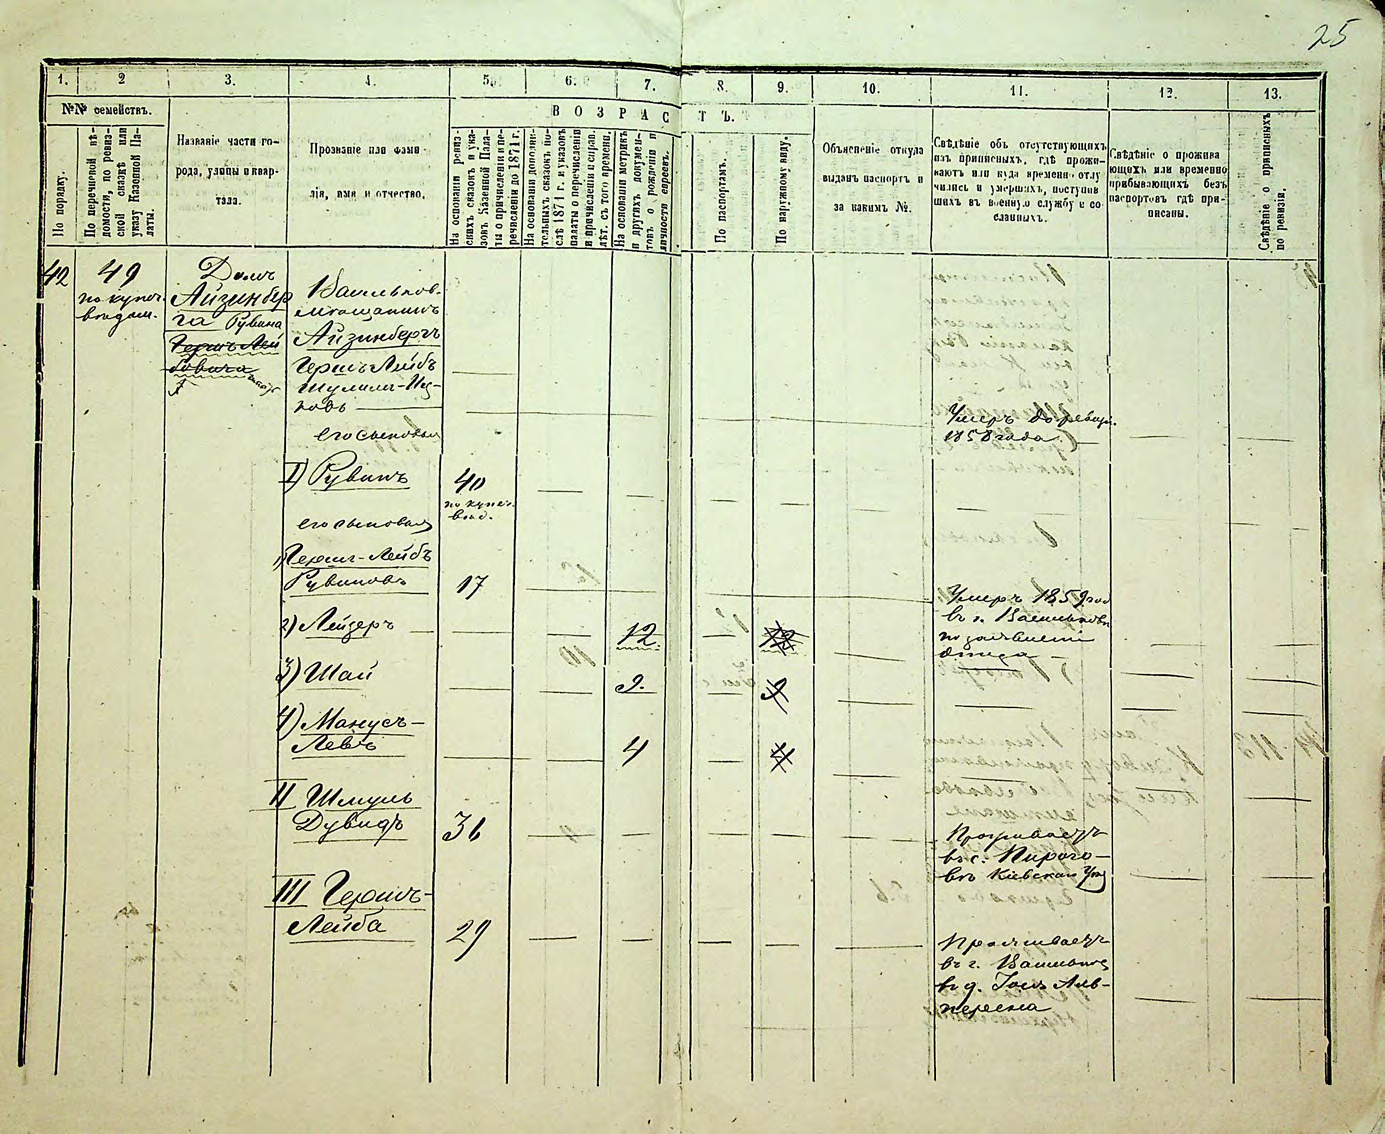 25
1.
2
3.
4.
5.
6.
7.
8.
9.
10.
11.
12.
13.
№№ семействъ.
По порядку.
По перечневой вѣ-
домости, по ревиз-
ской сказкѣ или
указу Казенной Па-
латы.
Названіе части го-
рода, улицы и квар-
тала.
Прозваніе или фами-
лія, имя и отчество.
ВОЗРАСТЪ.
На основаніи ревиз-
скихъ сказокъ и ука-
зовъ Казенной Пала-
ты о причисленіи и пе-
речисленіи до 1871 г.
На основаніи дополни-
тельныхъ сказокъ по-
слѣ 1871 г. и указовъ
палаты о перечисленіи
и причисленіи и справ.
лѣт. съ того времени.
На основаніи метрикъ
и другихъ докумен-
товъ о рожденіи и
личности евреевъ.
По паспортамъ.
По наружному виду.
Объясненіе откуда
выданъ паспортъ и
за какимъ №.
Свѣдѣніе объ отсутствующихъ
изъ приписныхъ, гдѣ прожи-
ваютъ или куда временно отлу
чились и умершихъ, поступив
шихъ въ военную службу и со-
сланныхъ.
Свѣдѣніе о прожива
ющихъ или временно
прибывающихъ безъ
паспортовъ гдѣ при-
писаны.
Свѣдѣніе о приписныхъ
по ревизіи.
42
49
по купеч.
Домъ
Айзинбер
га Рувина
Гершъ Лей
бовича
Васильков.
мѣщанинъ
Айзинбергъ
Гершъ Лейбъ
Шулимъ-Иц-
ковъ
Умеръ до ревизі.
1858 года
его сыновья
I) Рувинъ
40
по купеч.
его сыновья
1) Гершъ-Лейбъ
Рувиновъ
17
Умеръ 1859 год
въ г. Васильковѣ
по заявленію
отца
2) Лейзеръ
12.
12
3) Шай
9.
9
4) Манусъ-
Левъ
4
4
II Шмуль
Дувидъ
36
Проживаетъ
въ с. Пирого-
въ Кіевскаго Уѣз
III Гершъ-
Лейба
29
Проживаетъ
въ г. Васильков
въ д. Іосъ Аль-
перена